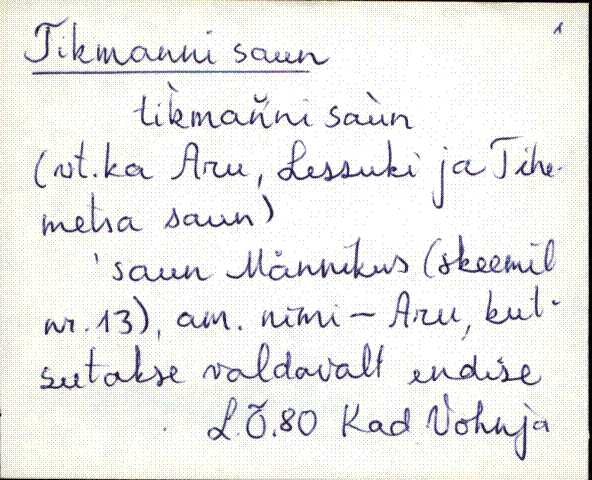 1
Tikmanni saun
tìkmañ̀ni saùn
(vt. ka Aru, Lessuki ja Tihe-
metsa saun)
'saun Männikus (skeemil
nr. 13), am. nimi – Aru, kut-
sutakse valdavalt endise
L.Õ.80 Kad Võhnja